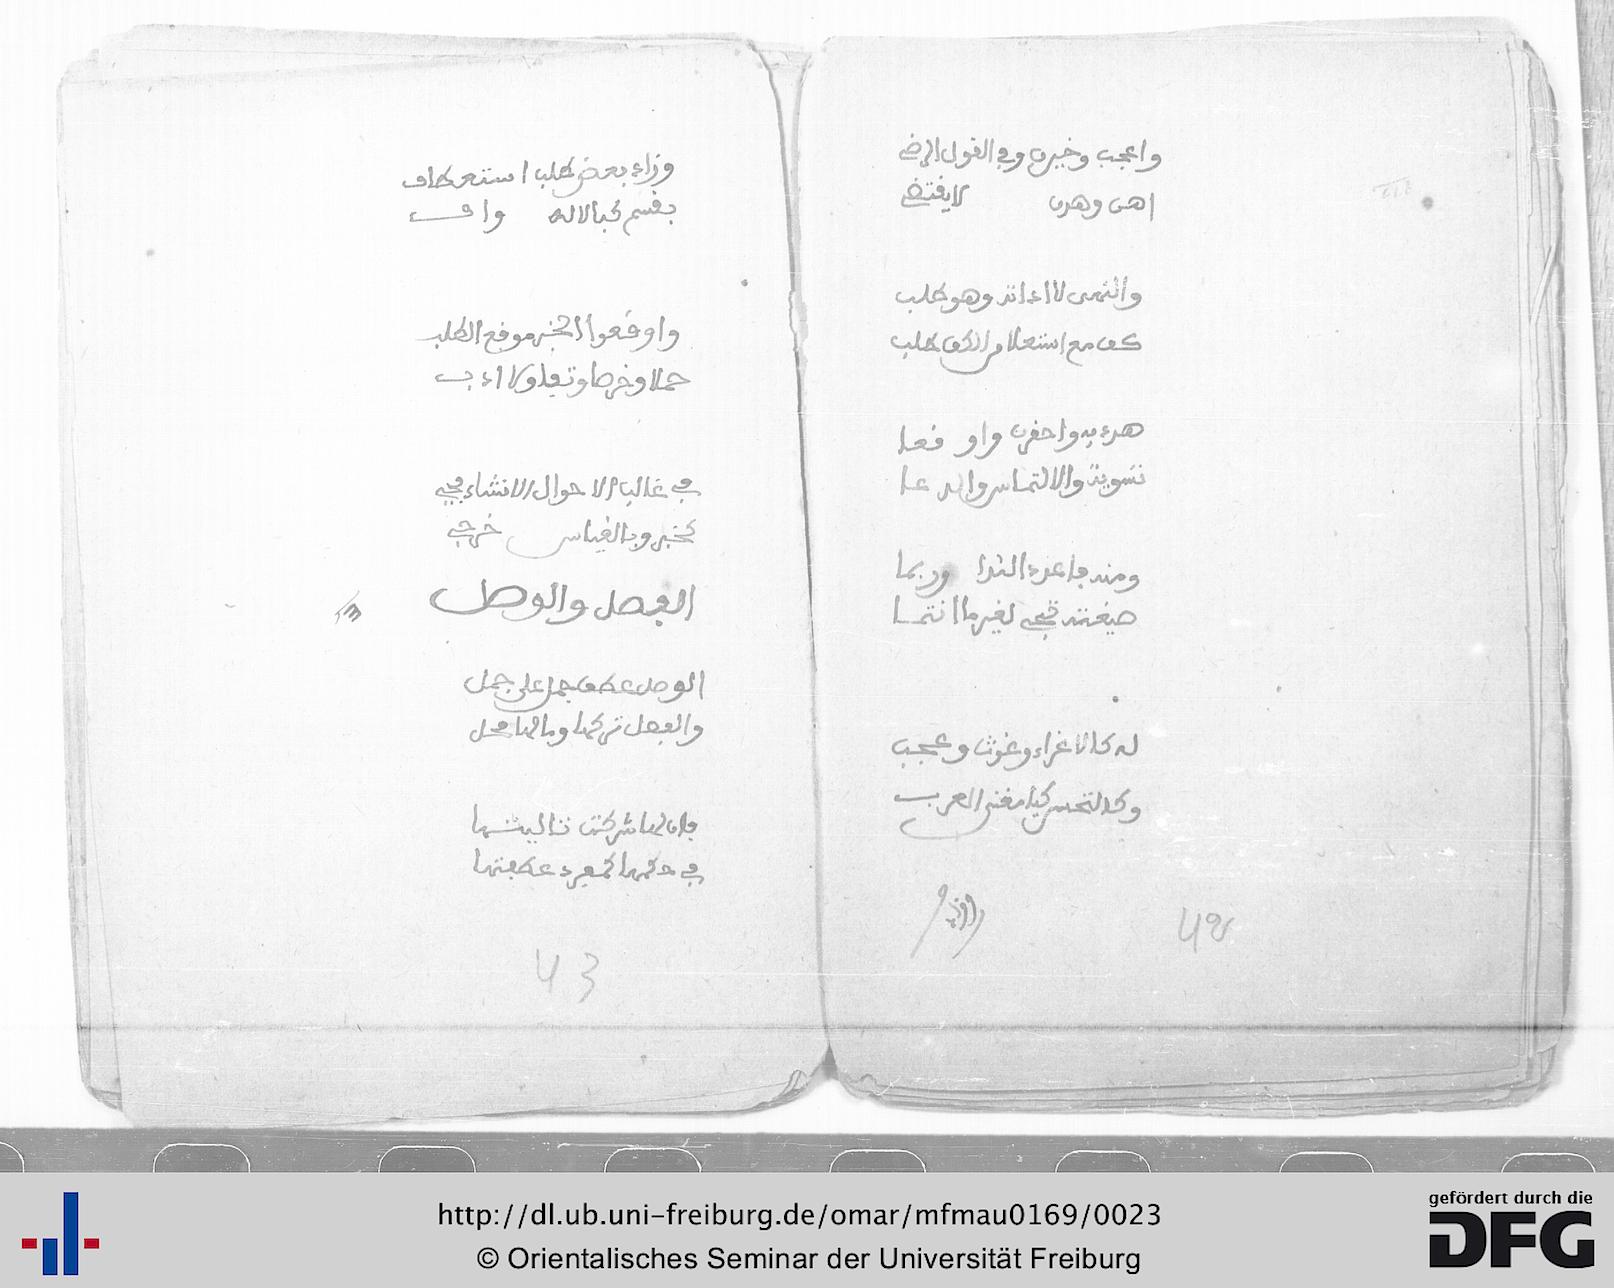 واعجب وخيرن وفي القول الرضى
اهن وهدن لا يقتضى
والنهي لا اداته وهو طلب
كف مع استعلا من الكف طلب
هدد به واحقرن واوقعا
تسوية والالتماس والدعا
ومنه فاعدد الندا وربما
صيغته تجي لغير ما انتما
له كالاغراء وغوث وعجب
وكالتحسر كيا مغنى العرب
42
وزاد بعض طلب استعطاف
بقسم كبالاله واف
واوقعوا الخبر موقع الطلب
حملا وحرصا وتفاولا ادب
في غالب الاحوال الانشاء يجي
كخبر وبالقياس خرج
الفصل والوصل
الوصل عطف جمل على جمل
والفصل تركها وما لها محل
فان لها شركت تاليتها
في حكمها كمفرد عطفتها
43
http://dl.ub.uni-freiburg.de/omar/mfmau0169/0023
© Orientalisches Seminar der Universität Freiburg
gefördert durch die
DFG